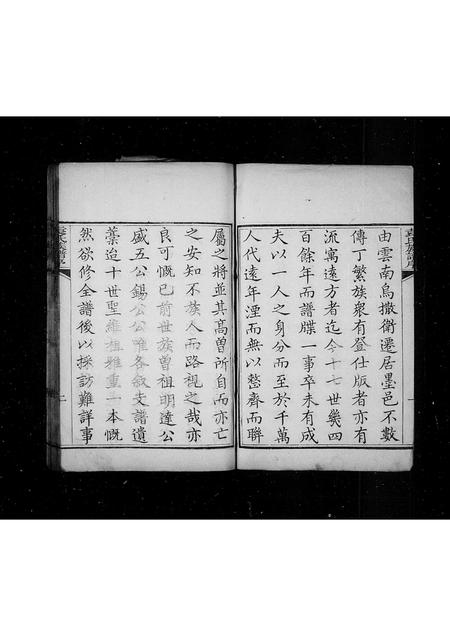 由雲南烏撒衛遷居墨邑不數
傳丁繁族衆有登仕版者亦有
流寓遠方者迄今十七世幾四
百餘年而譜牒一事卒未有成
夫以一人之身分而至於千萬
人代遠年湮而無以整齊而聯
屬之將並其高曾所自而亦亡
之安知不族人而路視之哉亦
良可慨已前世族曾祖明達公
盛五公錫公公唯各敘支譜遺
藁迨十世聖維祖雅重一本慨
然欲修全譜後以採訪難詳事